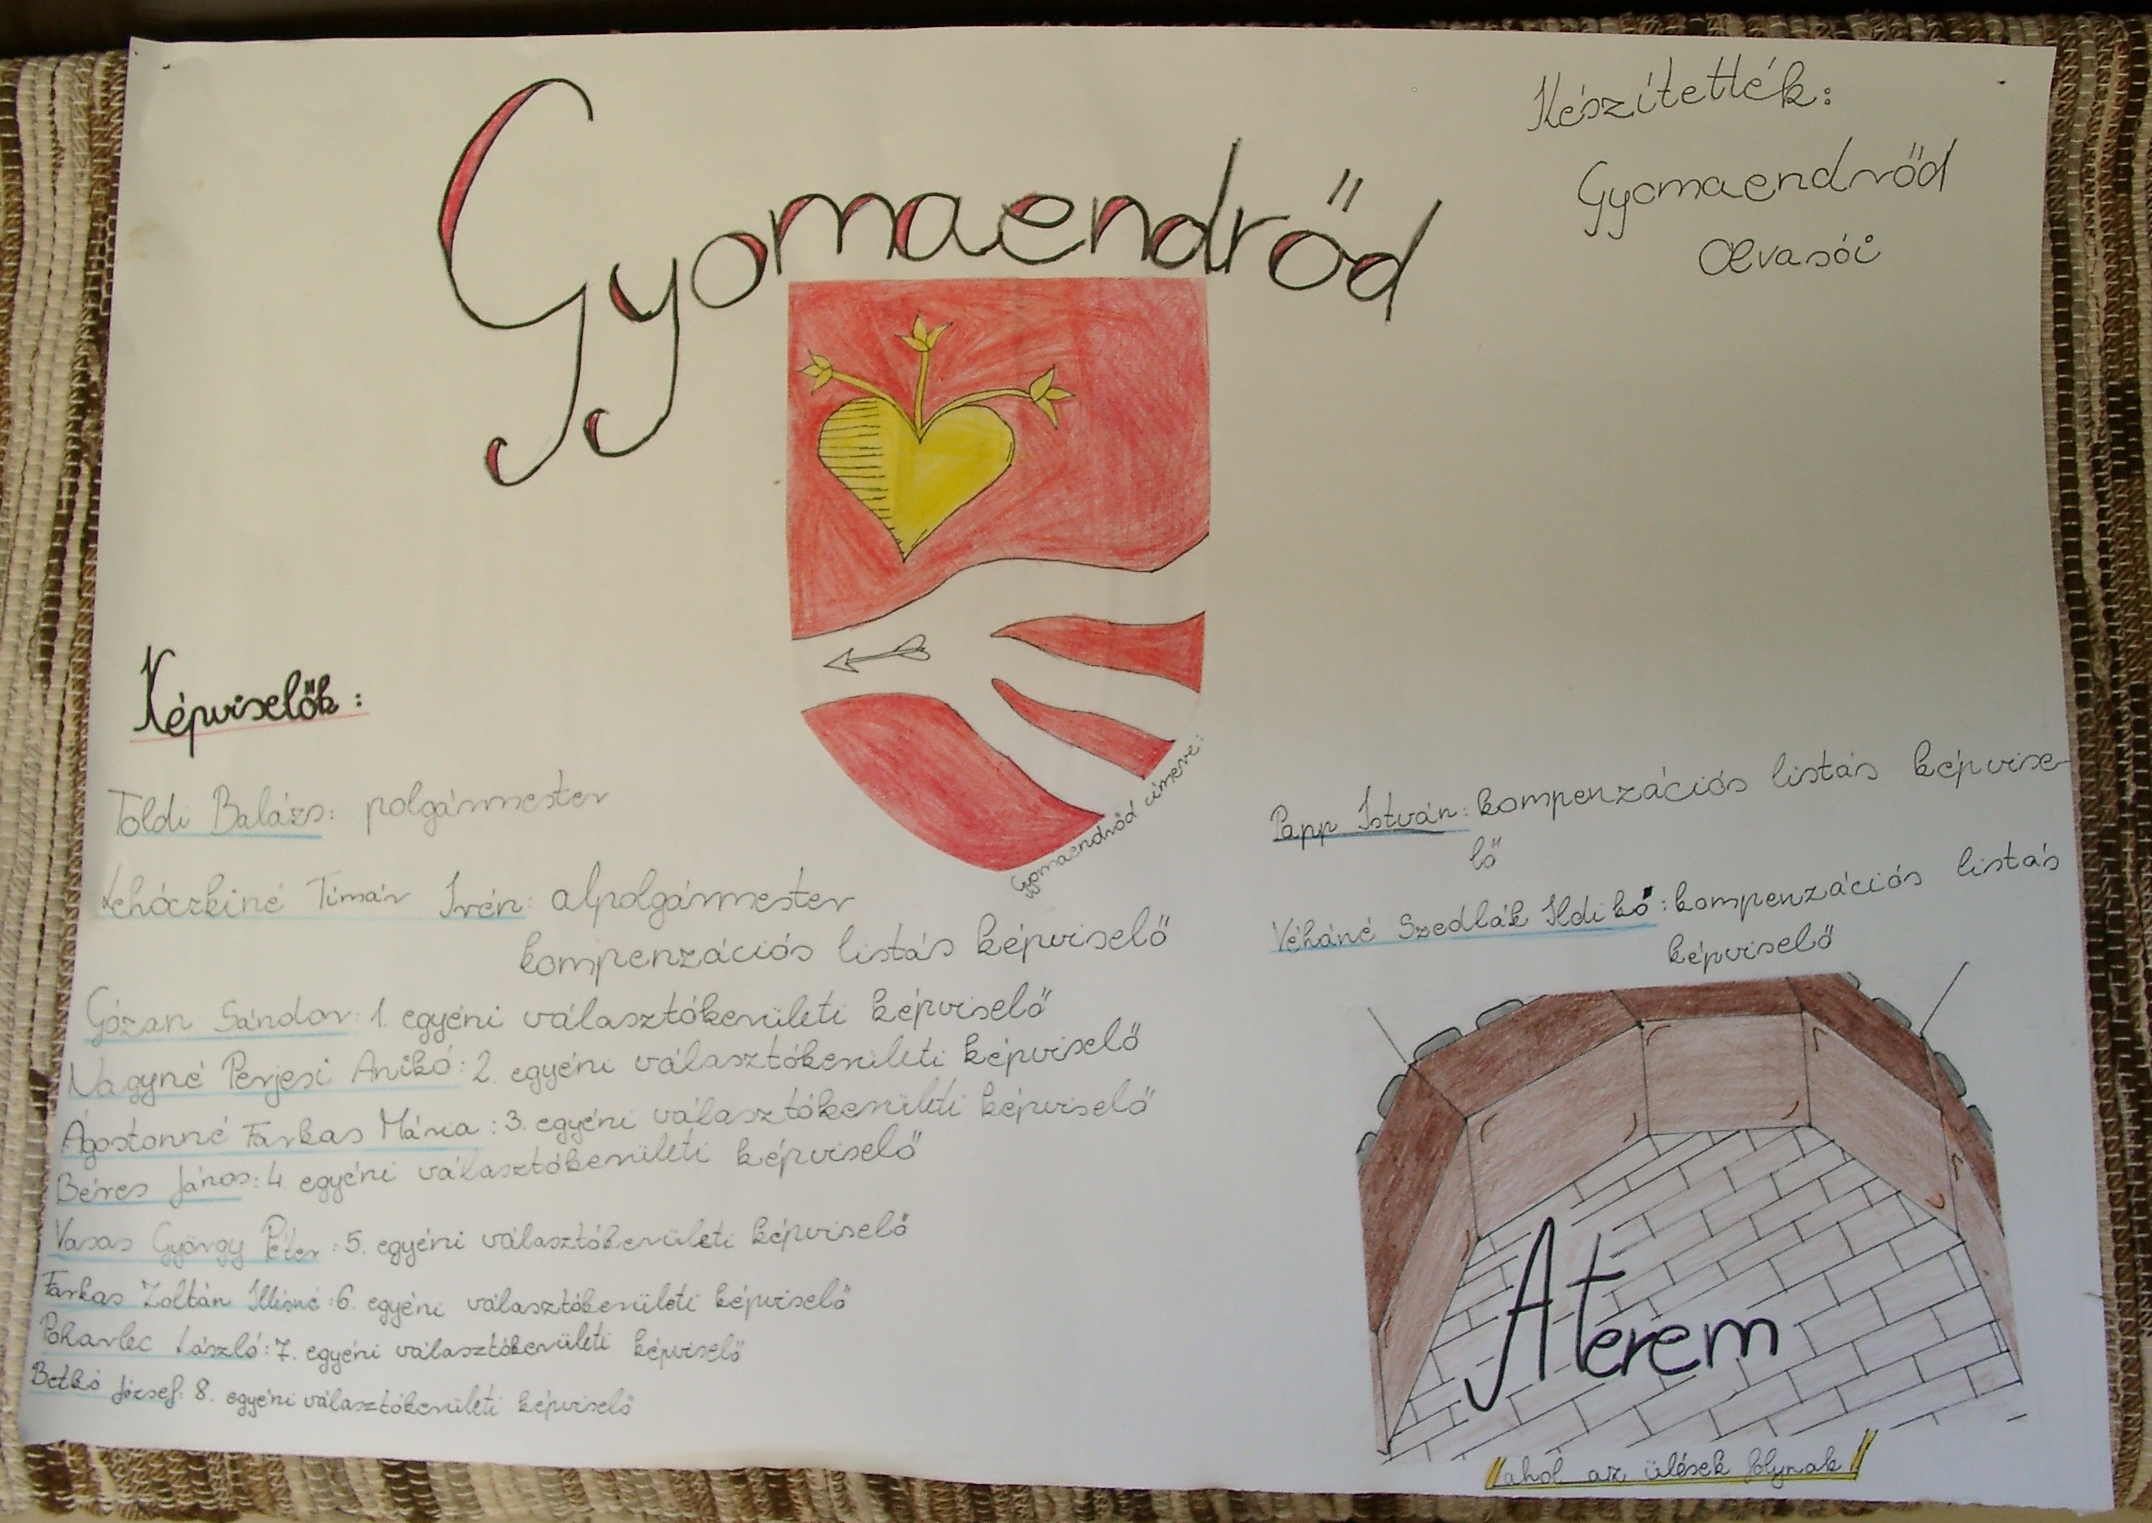 Gyomaendrőd
Készítették:
Gyomaendrőd
Olvasói
Gyomaendrőd címere:
Képviselők:
Toldi Balázs: polgármester
Lehóczkiné Tímár Irén: alpolgármester
kompenzációs listás képviselő
Gózan Sándor: 1. egyéni választókerületi képviselő
Nagyné Perjési Anikó: 2. egyéni választókerületi képviselő
Ágostonné Farkas Mária: 3. egyéni választókerületi képviselő
Béres János: 4. egyéni választókerületi képviselő
Vasas György Péter: 5. egyéni választókerületi képviselő
Farkas Zoltán Illésné: 6. egyéni választókerületi képviselő
László: 7. egyéni választókerületi képviselő
Betkó József: 8. egyéni választókerületi képviselő
Papp István: kompenzációs listás képvise-
lő
Véháné Szedlák Ildikó: kompenzációs listás
képviselő
A terem
ahol az ülések folynak